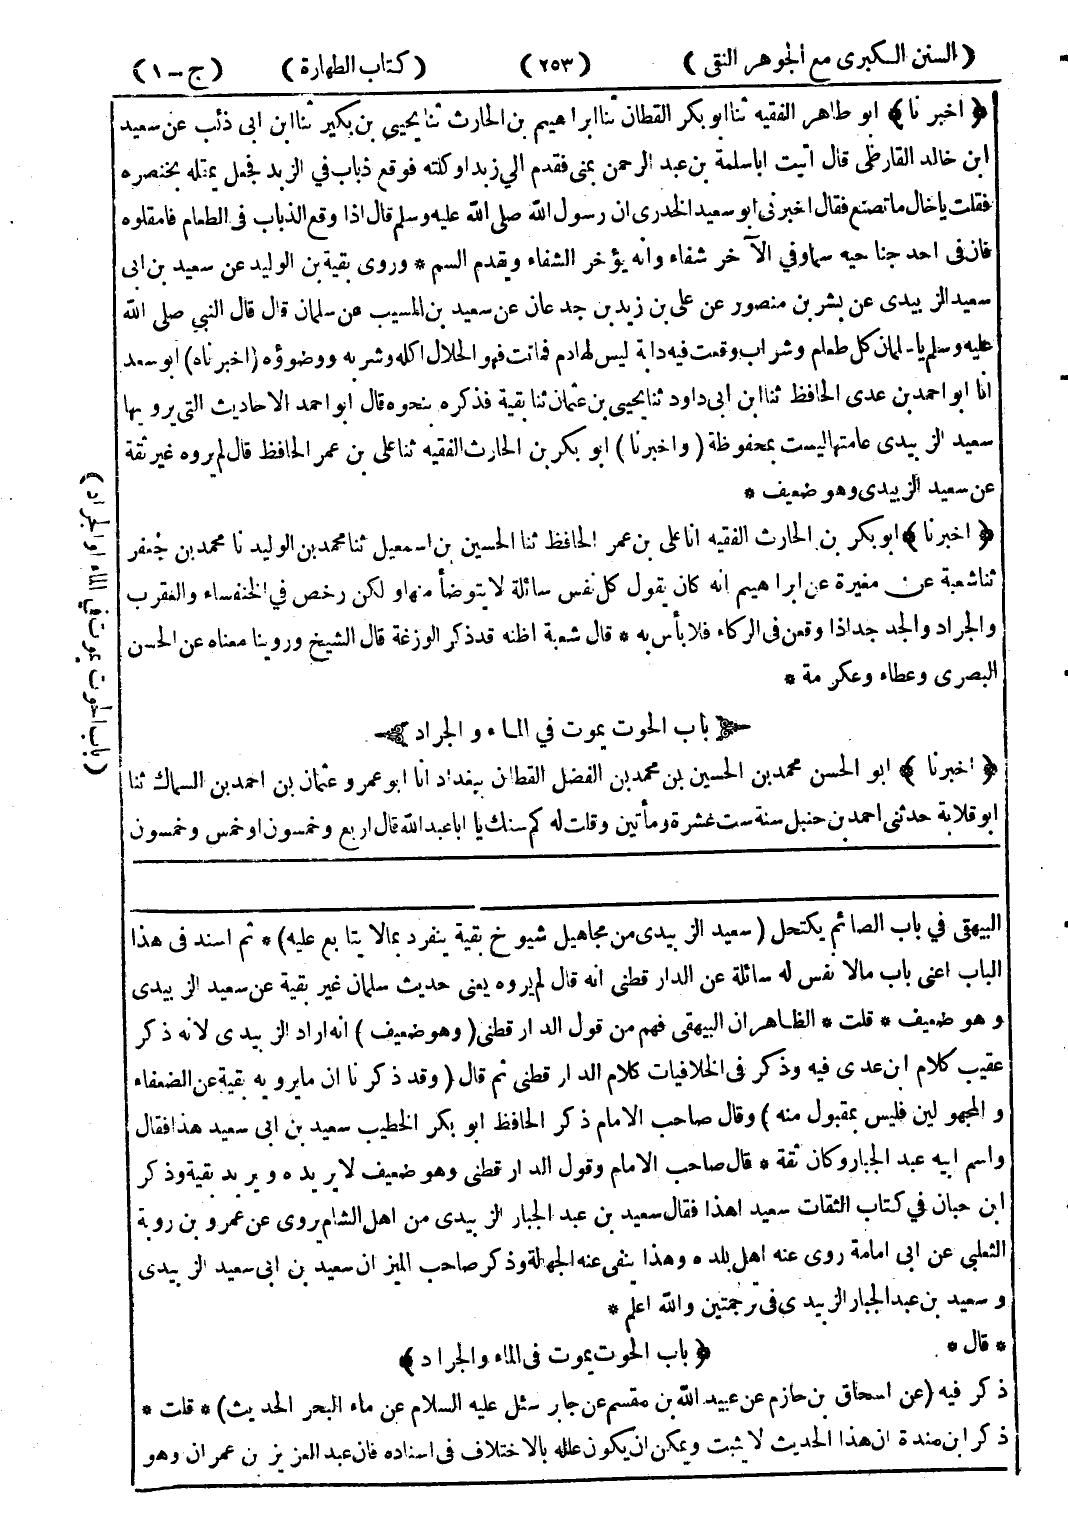 ( السنن الكبرى مع الجوهر النقى ) ( ٢٥٣ ) ( كتاب الطهارة ) ( ج – ١ )
﴿ اخبرنا ﴾ ابو طاهر الفقيه ثنا ابو بكر القطان ثنا ابراهيم بن الحارث ثنا يحيى بن بكير ثنا ابن ابى ذئب عن سعيد
ابن خالد القارظى قال اتيت اباسلمة بن عبد الرحمن بمنى فقدم الي زبدا وكتلة فوقع ذباب في الزبد فجعل يمقله بخنصره
فقلت ياخال ماتصنع فقال اخبرنى ابو سعيد الخدرى ان رسول الله صلى الله عليه وسلم قال اذا وقع الذباب فى الطعام فامقلوه
فان فى احد جناحيه سما وفي الآخر شفاء وانه يؤخر الشفاء ويقدم السم * وروى بقية بن الوليد عن سعيد بن ابى
سعيد الزبيدى عن بشر بن منصور عن على بن زيد بن جدعان عن سعيد بن المسيب عن سلمان قال قال النبي صلى الله
عليه وسلم يا سلمان كل طعام وشراب وقعت فيه دابة ليس لها دم فماتت فهو الحلال اكله وشربه ووضوؤه ( اخبرناه ) ابو سعد
انا ابو احمد بن عدى الحافظ ثنا ابن ابى داود ثنا يحيى بن عثمان ثنا بقية فذكره بنحوه قال ابو احمد الاحاديث التى يرويها
سعيد الزبيدى عامتها ليست بمحفوظة ( واخبرنا ) ابو بكر بن الحارث الفقيه ثنا على بن عمر الحافظ قال لم يروه غير بقية
عن سعيد الزبيدى وهو ضعيف *
﴿ اخبرنا ﴾ ابو بكر بن الحارث الفقيه انا على بن عمر الحافظ ثنا الحسين بن اسمعيل ثنا محمد بن الوليد نا محمد بن جعفر
ثنا شعبة عن مغيرة عن ابراهيم انه كان يقول كل نفس سائلة لا يتوضأ منها ولكن رخص في الخنفساء والعقرب
والجراد والجدجد اذا وقعن فى الركاء فلا بأس به * قال شعبة اظنه قد ذكر الوزغة قال الشيخ وروينا معناه عن الحسن
البصرى وعطاء وعكرمة *
باب الحوت يموت في الماء والجراد
﴿ اخبرنا ﴾ ابو الحسن محمد بن الحسين بن محمد بن الفضل القطان ببغداد انا ابو عمرو عثمان بن احمد بن السماك ثنا
ابو قلابة حدثنى احمد بن حنبل سنة ست عشرة ومأتين وقلت له كم سنك يا ابا عبد الله قال اربع وخمسون او خمس وخمسون
( باب الحوت يموت في الماء والجراد )
البيهقى في باب الصائم يكتحل ( سعيد الزبيدى من مجاهيل شيوخ بقية ينفرد بمالا يتابع عليه ) * ثم اسند فى هذا
الباب اعنى باب مالا نفس له سائلة عن الدارقطنى انه قال لم يروه يعنى حديث سلمان غير بقية عن سعيد الزبيدى
وهو ضعيف * قلت * الظاهر ان البيهقى فهم من قول الدارقطنى ( وهو ضعيف ) انه اراد الزبيدى لانه ذكر
عقيب كلام ابن عدى فيه وذكر فى الخلافيات كلام الدارقطنى ثم قال ( وقد ذكرنا ان مايرويه بقية عن الضعفاء
والمجهولين فليس بمقبول منه ) وقال صاحب الامام ذكر الحافظ ابو بكر الخطيب سعيد بن ابى سعيد هذا فقال
واسم ابيه عبد الجبار وكان ثقة * قال صاحب الامام وقول الدارقطنى وهو ضعيف لا يريده ويريد بقية وذكر
ابن حبان في كتاب الثقات سعيد اهذا فقال سعيد بن عبد الجبار الزبيدى من اهل الشام يروى عن عمرو بن روبة
الثعلبى عن ابى امامة روى عنه اهل بلده وهذا ينفى عنه الجهالة وذكر صاحب الميزان سعيد بن ابى سعيد الزبيدى
وسعيد بن عبد الجبار الزبيدى فى ترجمتين والله اعلم *
* قال * ﴿ باب الحوت يموت فى الماء والجراد ﴾
ذكر فيه ( عن اسحاق بن حازم عن عبيد الله بن مقسم عن جابر سئل عليه السلام عن ماء البحر الحديث ) * قلت *
ذكر ابن مندة ان هذا الحديث لا يثبت ويمكن ان يكون علله بالاختلاف فى اسناده فان عبد العزيز بن عمران وهو